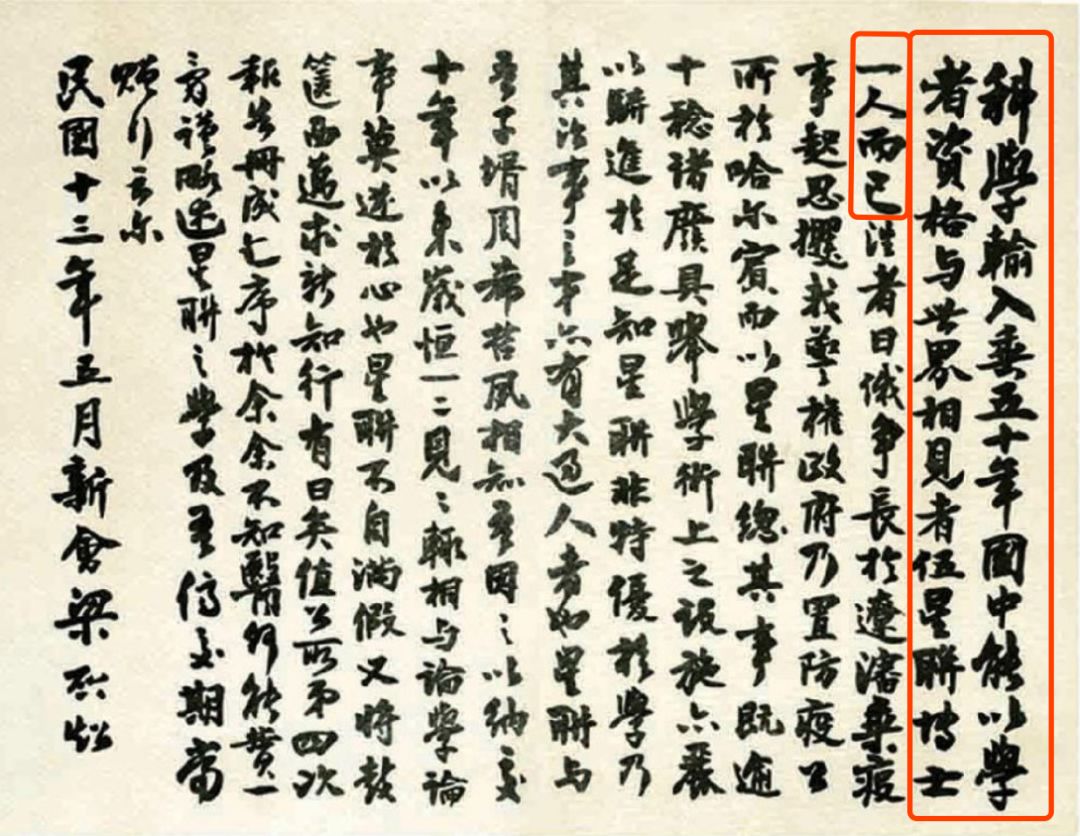 科學輸入垂五十年國中能以學
者資格与世界相見者伍星聯博士
一人而已洼者日俄爭長於遼瀋鼠疫
事起恐攫我藝權政府乃置防疫公
所於哈尔賓而以星聯總其事既逾
十稔諸廢具舉學術上之設施亦蒸
以駢進於是知星聯非特優於學乃
其治事之才亦有大過人者也星聯与
吾子壻周希哲夙相知吾因之以納交
十年以來歲恒一二見見輒相与論學論
事莫逆於心也星聯不自滿假又將鼓
篋西邁求新知行有日矣值公所第四次
報告冊成乞序於余余不知醫何能贊一
辭謹略述星聯之學及吾儕交期當
贈行云尔
民國十三年五月新會梁啓超